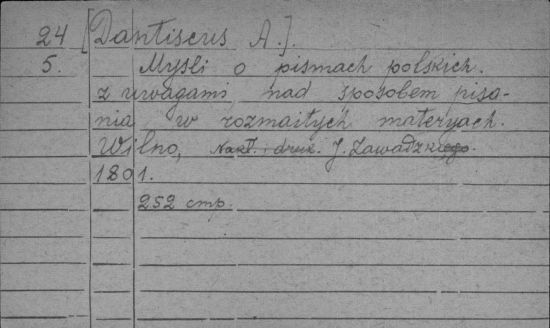 24 [Dantiscus A.].
5. Myśli o pismach polskich.
z uwagami nad sposobem pisa-
nia w rozmaitych materyach.
Wilno, Nakł. i druk. J. Zawadzkiego.
1801.
252 cmp.